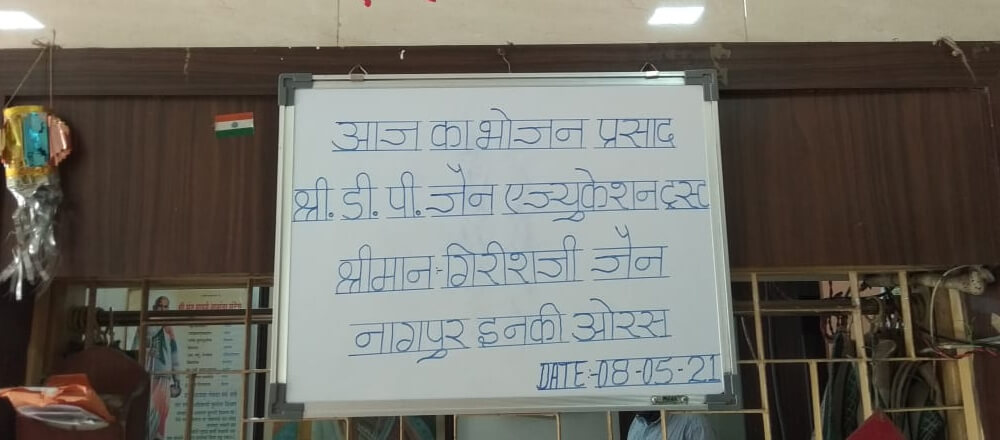 आज का भोजन प्रसाद
श्री. डी. पी. जैन एज्युकेशन ट्रस्ट
श्रीमान:-गिरीशजी जैन
नागपुर इनकी ओरस
DATE:-08-05-21